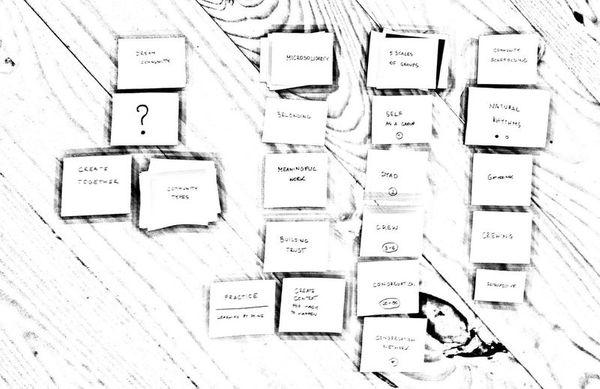 DREAM
COMMUNITY
?
CREATE
TOGETHER
COMMUNITY
TYPES
MICROSOLIDARITY
BELONGING
MEANINGFUL
WORK
BUILDING
TRUST
PRACTICE
LEARNING BY DOING
CREATE
CONTEXT
FOR MAGIC
TO HAPPEN
5 SCALES
OF GROUPS
SELF
AS A GROUP
DYAD
2
CREW
3-8
CONGREGATION
CONGREGATION
NETWORK
COMMUNITY
SCAFFOLDING
NATURAL
RHYTHMS
CREWING